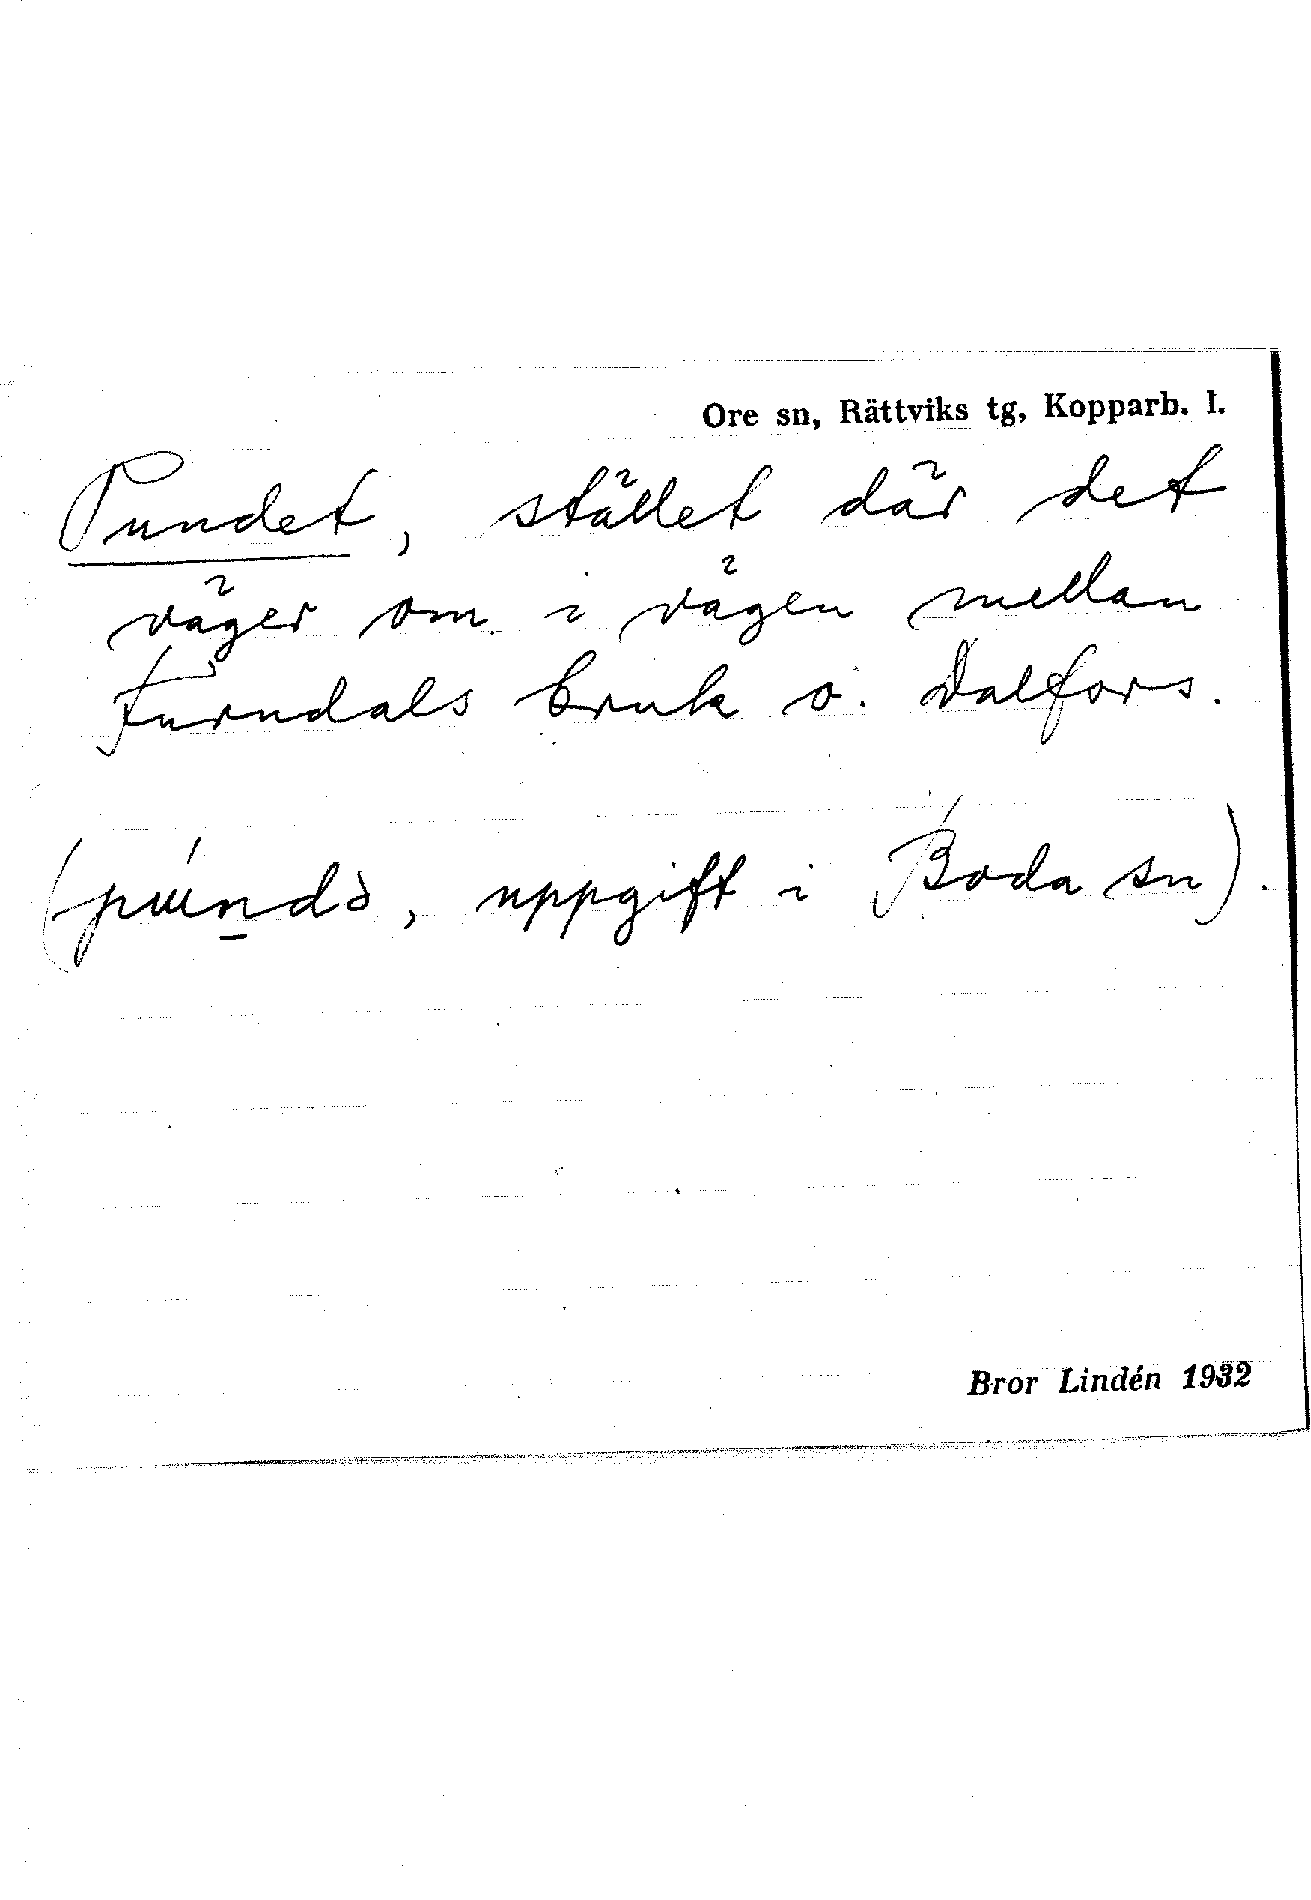 Ore sn, Rättviks tg, Kopparb. l.
Pundet, stället där det
väger om i vägen mellan
Furudals bruk o. Dalfors.
(pɯ́ndə̀, uppgift i Boda sn).
Bror Lindén 1932